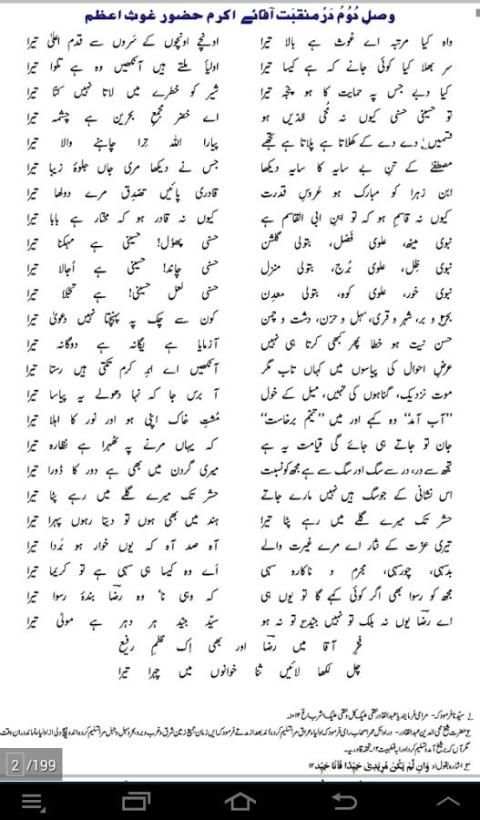 وصلِ دُوُم دَر منقبَت آقائے اکرم حضور غوثِ اعظم
واہ کیا مرتبہ اے غوث ہے بالا تیرا اونچے اونچوں کے سَروں سے قدم اعلیٰ تیرا
سر بھلا کیا کوئی جانے کہ ہے کیسا تیرا اولیا ملتے ہیں آنکھیں وہ ہے تلوا تیرا
کیا دبے جس پہ حمایت کا ہو پنجہ تیرا شیر کو خطرے میں لاتا نہیں کتّا تیرا
تو حسینی حسنی کیوں نہ محی الدّیں ہو اے خضر مجمعِ بحرین ہے چشمہ تیرا
قسمیں دے دے کے کھلاتا ہے پلاتا ہے تجھے پیارا اللہ ترا چاہنے والا تیرا
مصطفٰے کے تنِ بے سایہ کا سایہ دیکھا جس نے دیکھا مری جاں جلوۂ زیبا تیرا
ابنِ زہرا کو مبارک ہو عَروسِ قدرت قادری پائیں تصدق مرے دولھا تیرا
کیوں نہ قاسم ہو کہ تو ابنِ ابی القاسم ہے کیوں نہ قادر ہو کہ مختار ہے بابا تیرا
نبوی مینھ، علوی فصل، بتولی گلشن حسنی پھول! حسینی ہے مہکنا تیرا
نبوی ظِل، علوی بُرج، بتولی منزل حسنی چاند! حسینی ہے اُجالا تیرا
نبوی خور، علوی کوہ، بتولی معدِن حسنی لعل حسینی! ہے تجلّا تیرا
بحر و بر، شہر و قریٰ، سہل و حزن، دشت و چمن کون سے چک پہ پہنچتا نہیں دعویٰ تیرا
حسنِ نیت ہو خطا پھر کبھی کرتا ہی نہیں آزمایا ہے یگانہ ہے دوگانہ تیرا
عرضِ احوال کی پیاسوں میں کہاں تاب مگر آنکھیں اے ابرِ کرم تکتی ہیں رستا تیرا
موت نزدیک، گناہوں کی تہیں، میل کے خول آ برس جا کہ نہا دھولے یہ پیاسا تیرا
‘‘آب آمد’’ وہ کہے اور میں ‘‘تیمّم برخاست’’ مُشتِ خاک اپنی ہو اور نور کا اہلا تیرا
جان تو جاتے ہی جائے گی قیامت یہ ہے کہ یہاں مرنے پہ ٹھہرا ہے نظارہ تیرا
تجھ سے در، در سے سگ اور سگ سے ہے مجھ کو نسبت میری گردن میں بھی ہے دور کا ڈورا تیرا
اس نشانی کے جو سگ ہیں نہیں مارے جاتے حشر تک میرے گلے میں رہے پٹا تیرا
حشر تک میرے گلے میں رہے پٹا تیرا ہند میں بھی ہوں تو دیتا رہوں پہرا تیرا
تیری عزت کے نثار اے مرے غیرت والے آہ صد آہ کہ یوں خوار ہو بُردا تیرا
بد سہی، چور سہی، مجرم و ناکارہ سہی اَے وہ کیسا ہی سہی ہے تو کریما تیرا
مجھ کو رسوا بھی اگر کوئی کہے گا تو یوں ہی کہ وہی نا' وہ رضؔا بندۂ رسوا تیرا
اے رضؔا یوں نہ بلک تو نہیں جیّد تو نہ ہو سیّدِ جیّدِ ہر دہر ہے مولیٰ تیرا
فخرِ آقا میں رضؔا اور بھی اِک نظمِ رفیع
چل لکھا لائیں ثنا خوانوں میں چہرا تیرا
2/199